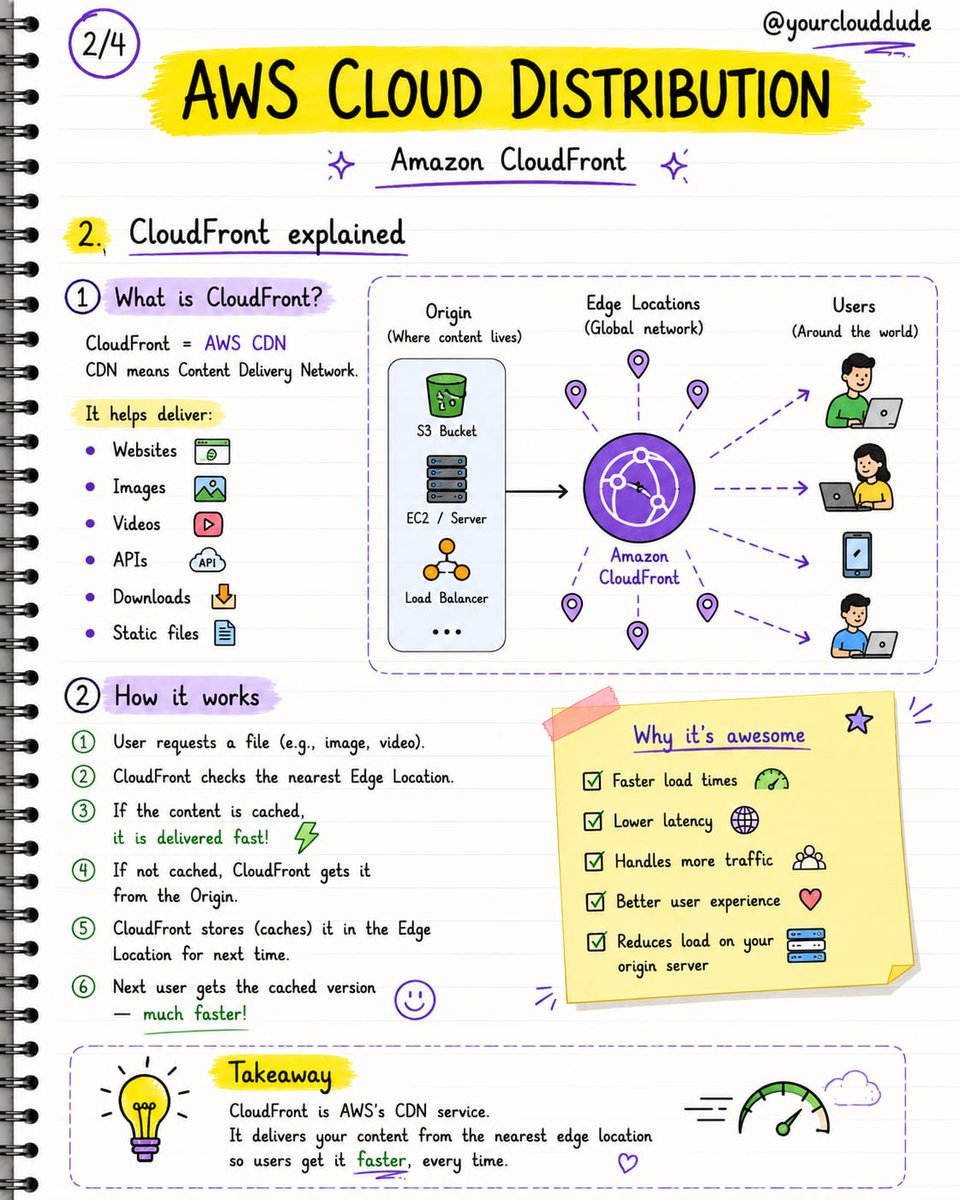 2/4
@yourclouddude
AWS CLOUD DISTRIBUTION
Amazon CloudFront
2. CloudFront explained
1 What is CloudFront?
CloudFront = AWS CDN
CDN means Content Delivery Network.
It helps deliver:
• Websites
• Images
• Videos
• APIs
API
• Downloads
• Static files
Origin
(Where content lives)
S3 Bucket
EC2 / Server
Load Balancer
...
Edge Locations
(Global network)
Amazon
CloudFront
Users
(Around the world)
2 How it works
1 User requests a file (e.g., image, video).
2 CloudFront checks the nearest Edge Location.
3 If the content is cached,
it is delivered fast!
4 If not cached, CloudFront gets it
from the Origin.
5 CloudFront stores (caches) it in the Edge
Location for next time.
6 Next user gets the cached version
— much faster!
Why it's awesome
Faster load times
Lower latency
Handles more traffic
Better user experience
Reduces load on your
origin server
Takeaway
CloudFront is AWS's CDN service.
It delivers your content from the nearest edge location
so users get it faster, every time.